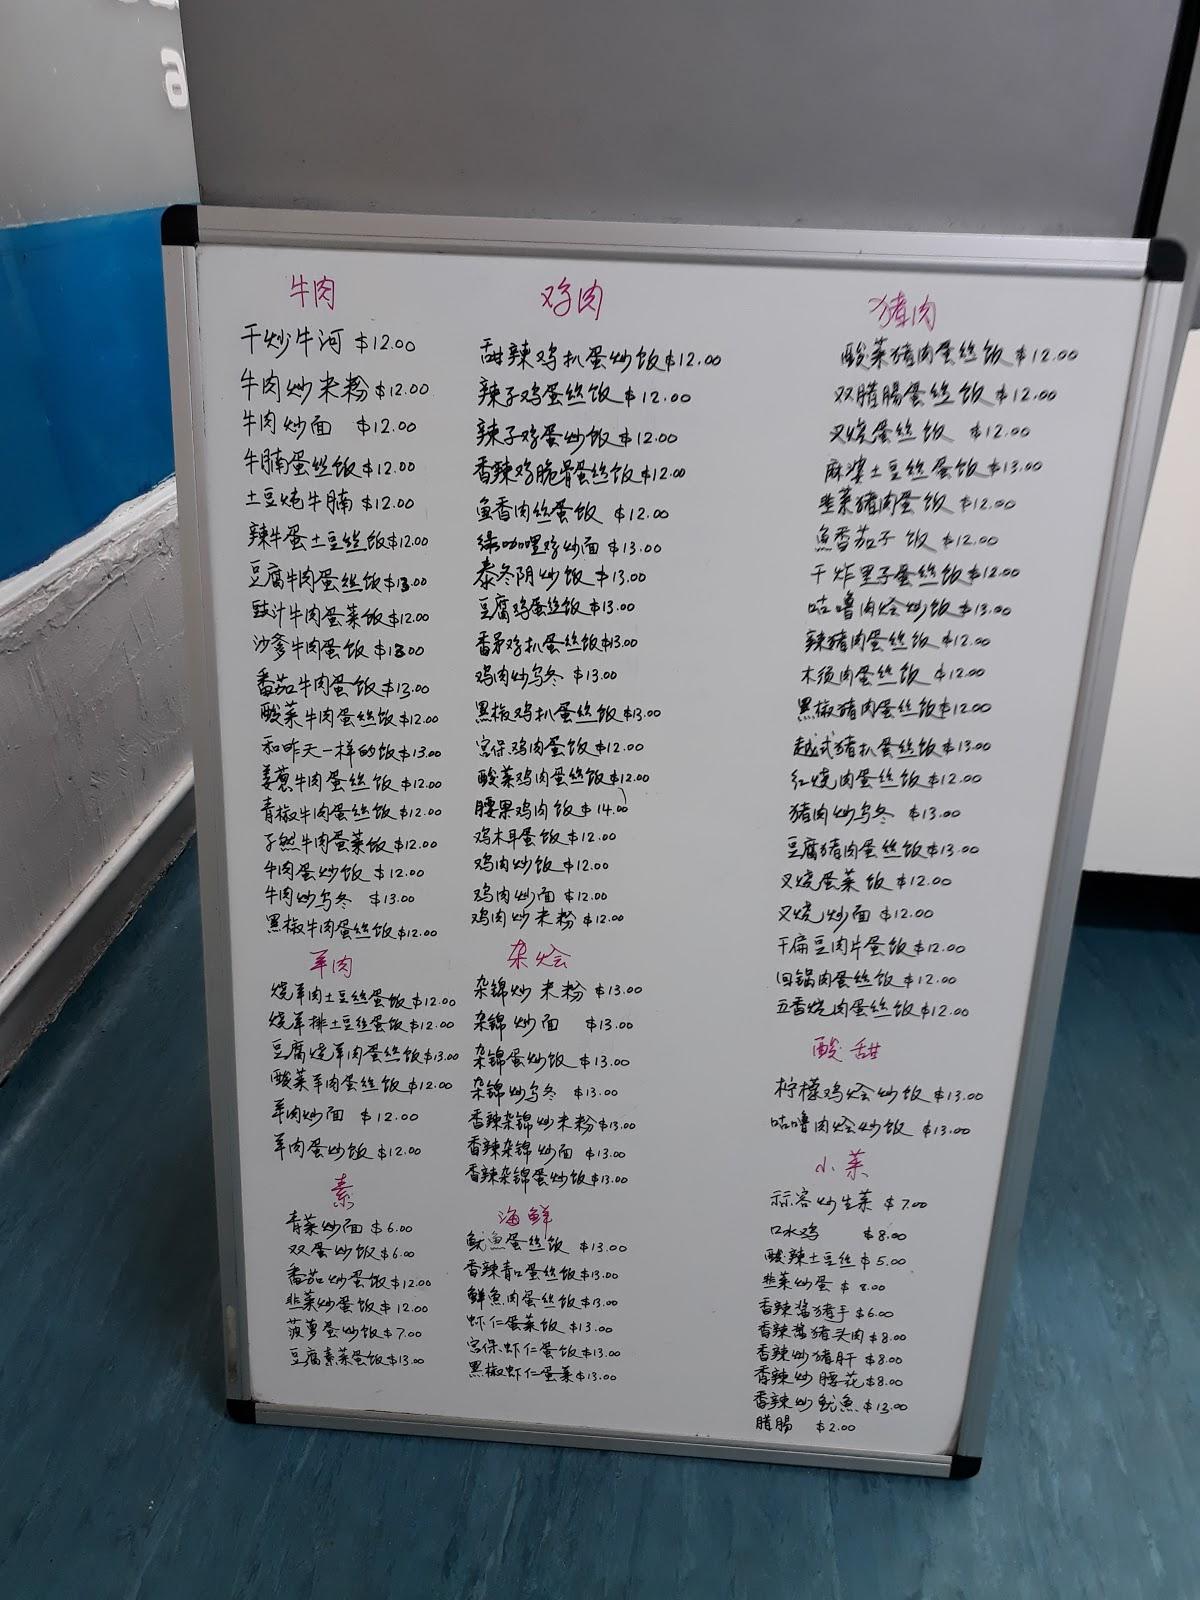 a
牛肉
干炒牛河 $12.00
牛肉炒米粉 $12.00
牛肉炒面 $12.00
牛腩蛋丝饭 $12.00
土豆炖牛腩 $12.00
辣牛蛋土豆丝饭 $12.00
豆腐牛肉蛋丝饭 $13.00
豉汁牛肉蛋菜饭 $12.00
沙爹牛肉蛋饭 $13.00
番茄牛肉蛋饭 $13.00
酸菜牛肉蛋丝饭 $12.00
和昨天一样的饭 $13.00
姜葱牛肉蛋丝饭 $12.00
青椒牛肉蛋丝饭 $12.00
孑然牛肉蛋菜饭 $12.00
牛肉蛋炒饭 $12.00
牛肉炒乌冬 $13.00
黑椒牛肉蛋丝饭 $12.00
羊肉
烧羊肉土豆丝蛋饭 $12.00
烧羊排土豆丝蛋饭 $12.00
豆腐烧羊肉蛋丝饭 $13.00
酸菜羊肉蛋丝饭 $12.00
羊肉炒面 $12.00
羊肉蛋炒饭 $12.00
素
青菜炒面 $6.00
双蛋炒饭 $6.00
番茄炒蛋饭 $12.00
韭菜炒蛋饭 $12.00
菠萝蛋炒饭 $7.00
豆腐素菜蛋饭 $13.00
鸡肉
甜辣鸡扒蛋炒饭 $12.00
辣子鸡蛋丝饭 $12.00
辣子鸡蛋炒饭 $12.00
香辣鸡脆骨蛋丝饭 $12.00
鱼香肉丝蛋饭 $12.00
绿咖喱鸡炒面 $13.00
泰冬阴炒饭 $13.00
豆腐鸡蛋丝饭 $13.00
香茅鸡扒蛋丝饭 $13.00
鸡肉炒乌冬 $13.00
黑椒鸡扒蛋丝饭 $13.00
宫保鸡肉蛋饭 $12.00
酸菜鸡肉蛋丝饭 $12.00
腰果鸡肉饭 $14.00
鸡木耳蛋饭 $12.00
鸡肉炒饭 $12.00
鸡肉炒面 $12.00
鸡肉炒米粉 $12.00
杂烩
杂锦炒米粉 $13.00
杂锦炒面 $13.00
杂锦蛋炒饭 $13.00
杂锦炒乌冬 $13.00
香辣杂锦炒米粉 $13.00
香辣杂锦炒面 $13.00
香辣杂锦蛋炒饭 $13.00
海鲜
鱿魚蛋丝饭 $13.00
香辣青口蛋丝饭 $13.00
鲜魚肉蛋丝饭 $13.00
虾仁蛋菜饭 $13.00
宫保虾仁蛋饭 $13.00
黑椒虾仁蛋菜 $13.00
猪肉
酸菜猪肉蛋丝饭 $12.00
双腊腸蛋丝饭 $12.00
叉烧蛋丝饭 $12.00
麻婆土豆丝蛋饭 $13.00
韭菜猪肉蛋饭 $12.00
魚香茄子饭 $12.00
干炸里子蛋丝饭 $12.00
咕噜肉烩炒饭 $13.00
辣猪肉蛋丝饭 $12.00
木须肉蛋丝饭 $12.00
黑椒猪肉蛋丝饭 $12.00
越式猪扒蛋丝饭 $13.00
红烧肉蛋丝饭 $12.00
猪肉炒乌冬 $13.00
豆腐猪肉蛋丝饭 $13.00
叉烧蛋菜饭 $12.00
叉烧炒面 $12.00
干扁豆肉片蛋饭 $12.00
回锅肉蛋丝饭 $12.00
五香烧肉蛋丝饭 $12.00
酸甜
柠檬鸡烩炒饭 $13.00
咕噜肉烩炒饭 $13.00
小菜
炒生菜 $7.00
口水鸡 $8.00
酸辣土豆丝 $5.00
韭菜炒蛋 $8.00
香辣酱猪手 $6.00
香辣酱猪头肉 $8.00
香辣炒猪肝 $8.00
香辣炒腰花 $8.00
香辣炒鱿魚 $13.00
腊腸 $2.00